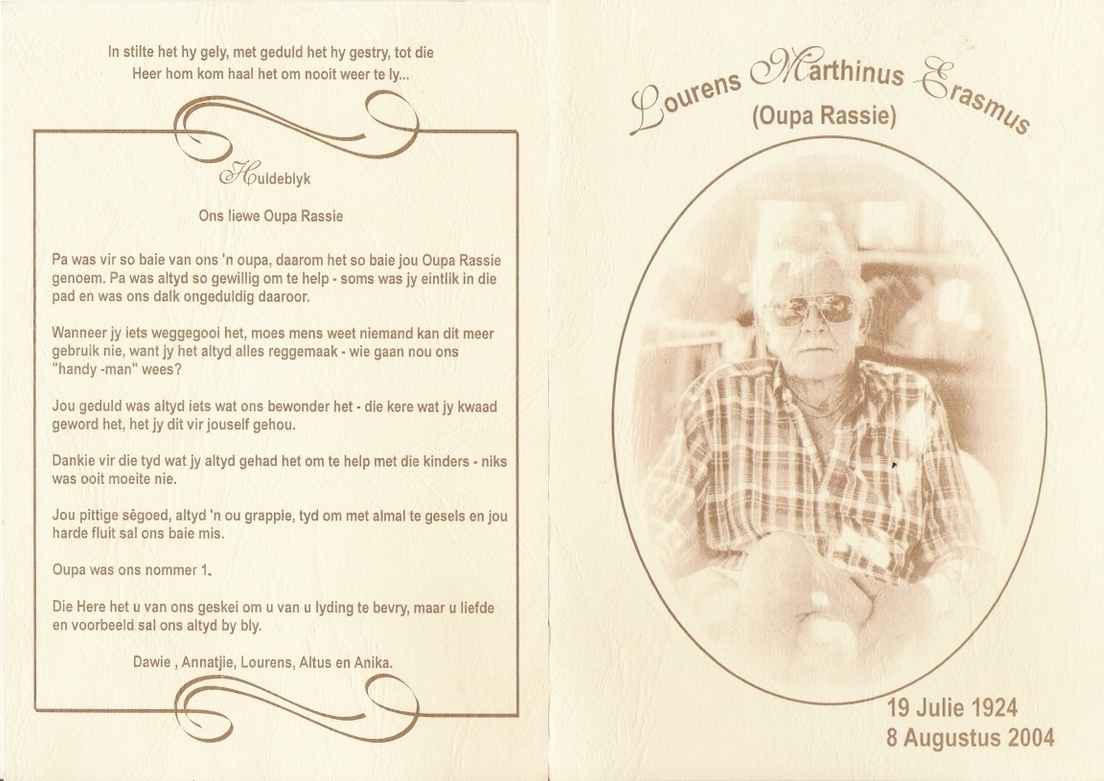 In stilte het hy gely, met geduld het hy gestry, tot die
Heer hom kom haal het om nooit weer te ly...
Huldeblyk
Ons liewe Oupa Rassie
Pa was vir so baie van ons 'n oupa, daarom het so baie jou Oupa Rassie
genoem. Pa was altyd so gewillig om te help - soms was jy eintlik in die
pad en was ons dalk ongeduldig daaroor.
Wanneer jy iets weggegooi het, moes mens weet niemand kan dit meer
gebruik nie, want jy het altyd alles reggemaak - wie gaan nou ons
"handy -man" wees?
Jou geduld was altyd iets wat ons bewonder het - die kere wat jy kwaad
geword het, het jy dit vir jouself gehou.
Dankie vir die tyd wat jy altyd gehad het om te help met die kinders - niks
was ooit moeite nie.
Jou pittige sêgoed, altyd 'n ou grappie, tyd om met almal te gesels en jou
harde fluit sal ons baie mis.
Oupa was ons nommer 1.
Die Here het u van ons geskei om u van u lyding te bevry, maar u liefde
en voorbeeld sal ons altyd by bly.
Dawie , Annatjie, Lourens, Altus en Anika.
Lourens Marthinus Erasmus
(Oupa Rassie)
19 Julie 1924
8 Augustus 2004